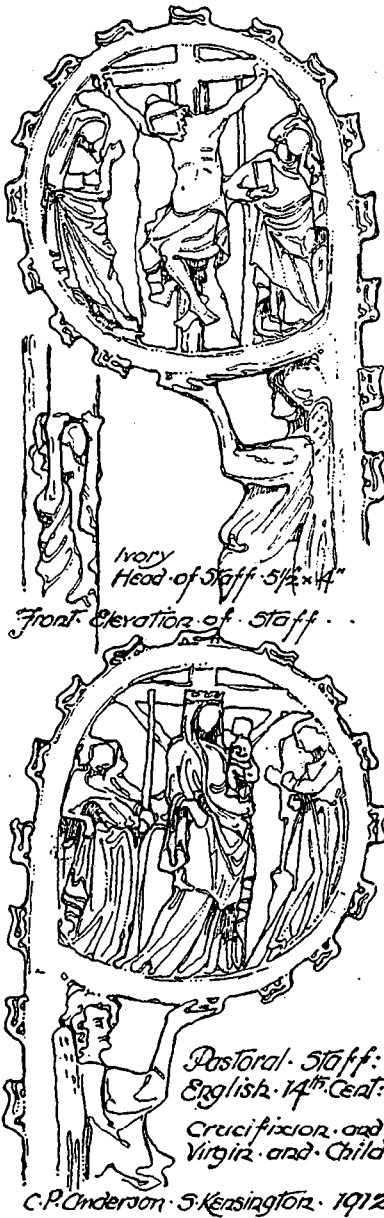 Ivory
Head·of·Staff·5½"×4"
Front·Elevation·of·Staff··
Pastoral·Staff:
English·14th·Cent:
Crucifixion·and
Virgin·and·Child
C.P.Anderson·S.Kensington·1912